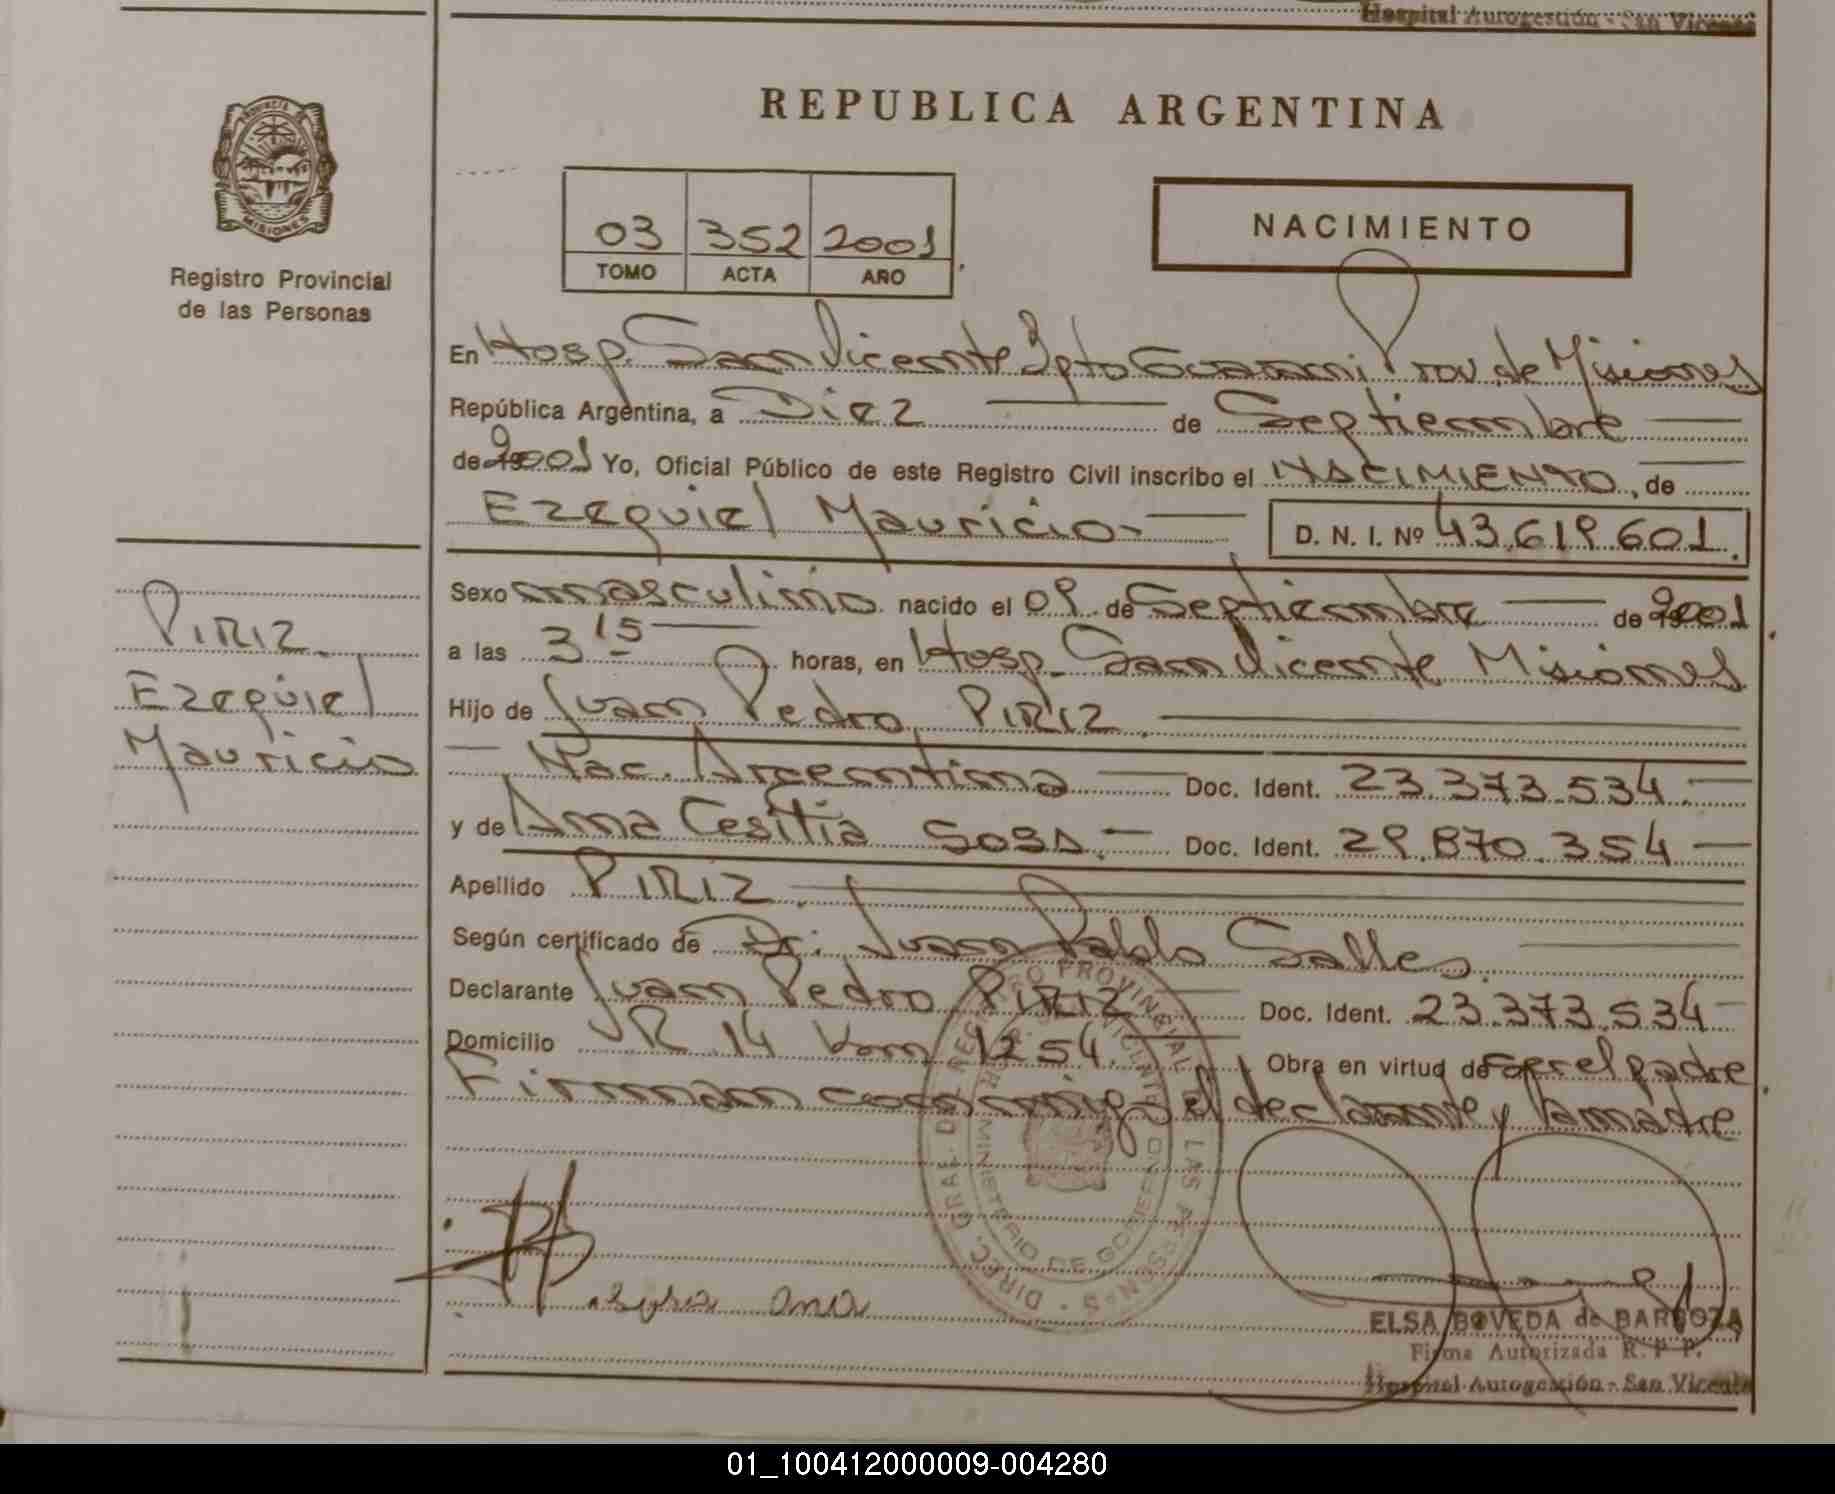 Hospital Autogestión - San Vicente
REPUBLICA ARGENTINA
PROVINCIA
MISIONES
Registro Provincial
de las Personas
03 352 2001
TOMO ACTA AÑO
NACIMIENTO
En Hosp. San Vicente Dpto Guarani Prov. de Misiones
República Argentina, a Diez de Septiembre
de 2001 Yo, Oficial Público de este Registro Civil inscribo el NACIMIENTO, de
Ezequiel Mauricio.- D. N. I. Nº 43.619.601.
Sexo masculino nacido el 09 de Septiembre de 2001
a las 3 15 horas, en Hosp. San Vicente Misiones
Hijo de Juan Pedro PIRIZ.
Nac. Argentina Doc. Ident. 23.373.534.
y de Ana SOSA.- Doc. Ident. 29.870.354
Apellido PIRIZ.
Según certificado de Dr. Juan Pablo Salles.
Declarante Juan Pedro PIRIZ Doc. Ident. 23.373.534
Domicilio R 14 Km 1254. Obra en virtud de ser el padre
Firman conmigo el declarante y la madre
PIRIZ.
Ezequiel
Mauricio
DIREC. GRAL. DE REGISTRO PROVINCIAL DE LAS PERSONAS
MINISTERIO DE GOBIERNO
ana
ELSA BOVEDA de BARBOZA
Firma Autorizada R. P. P.
Hospital Autogestión - San Vicente
01_100412000009-004280